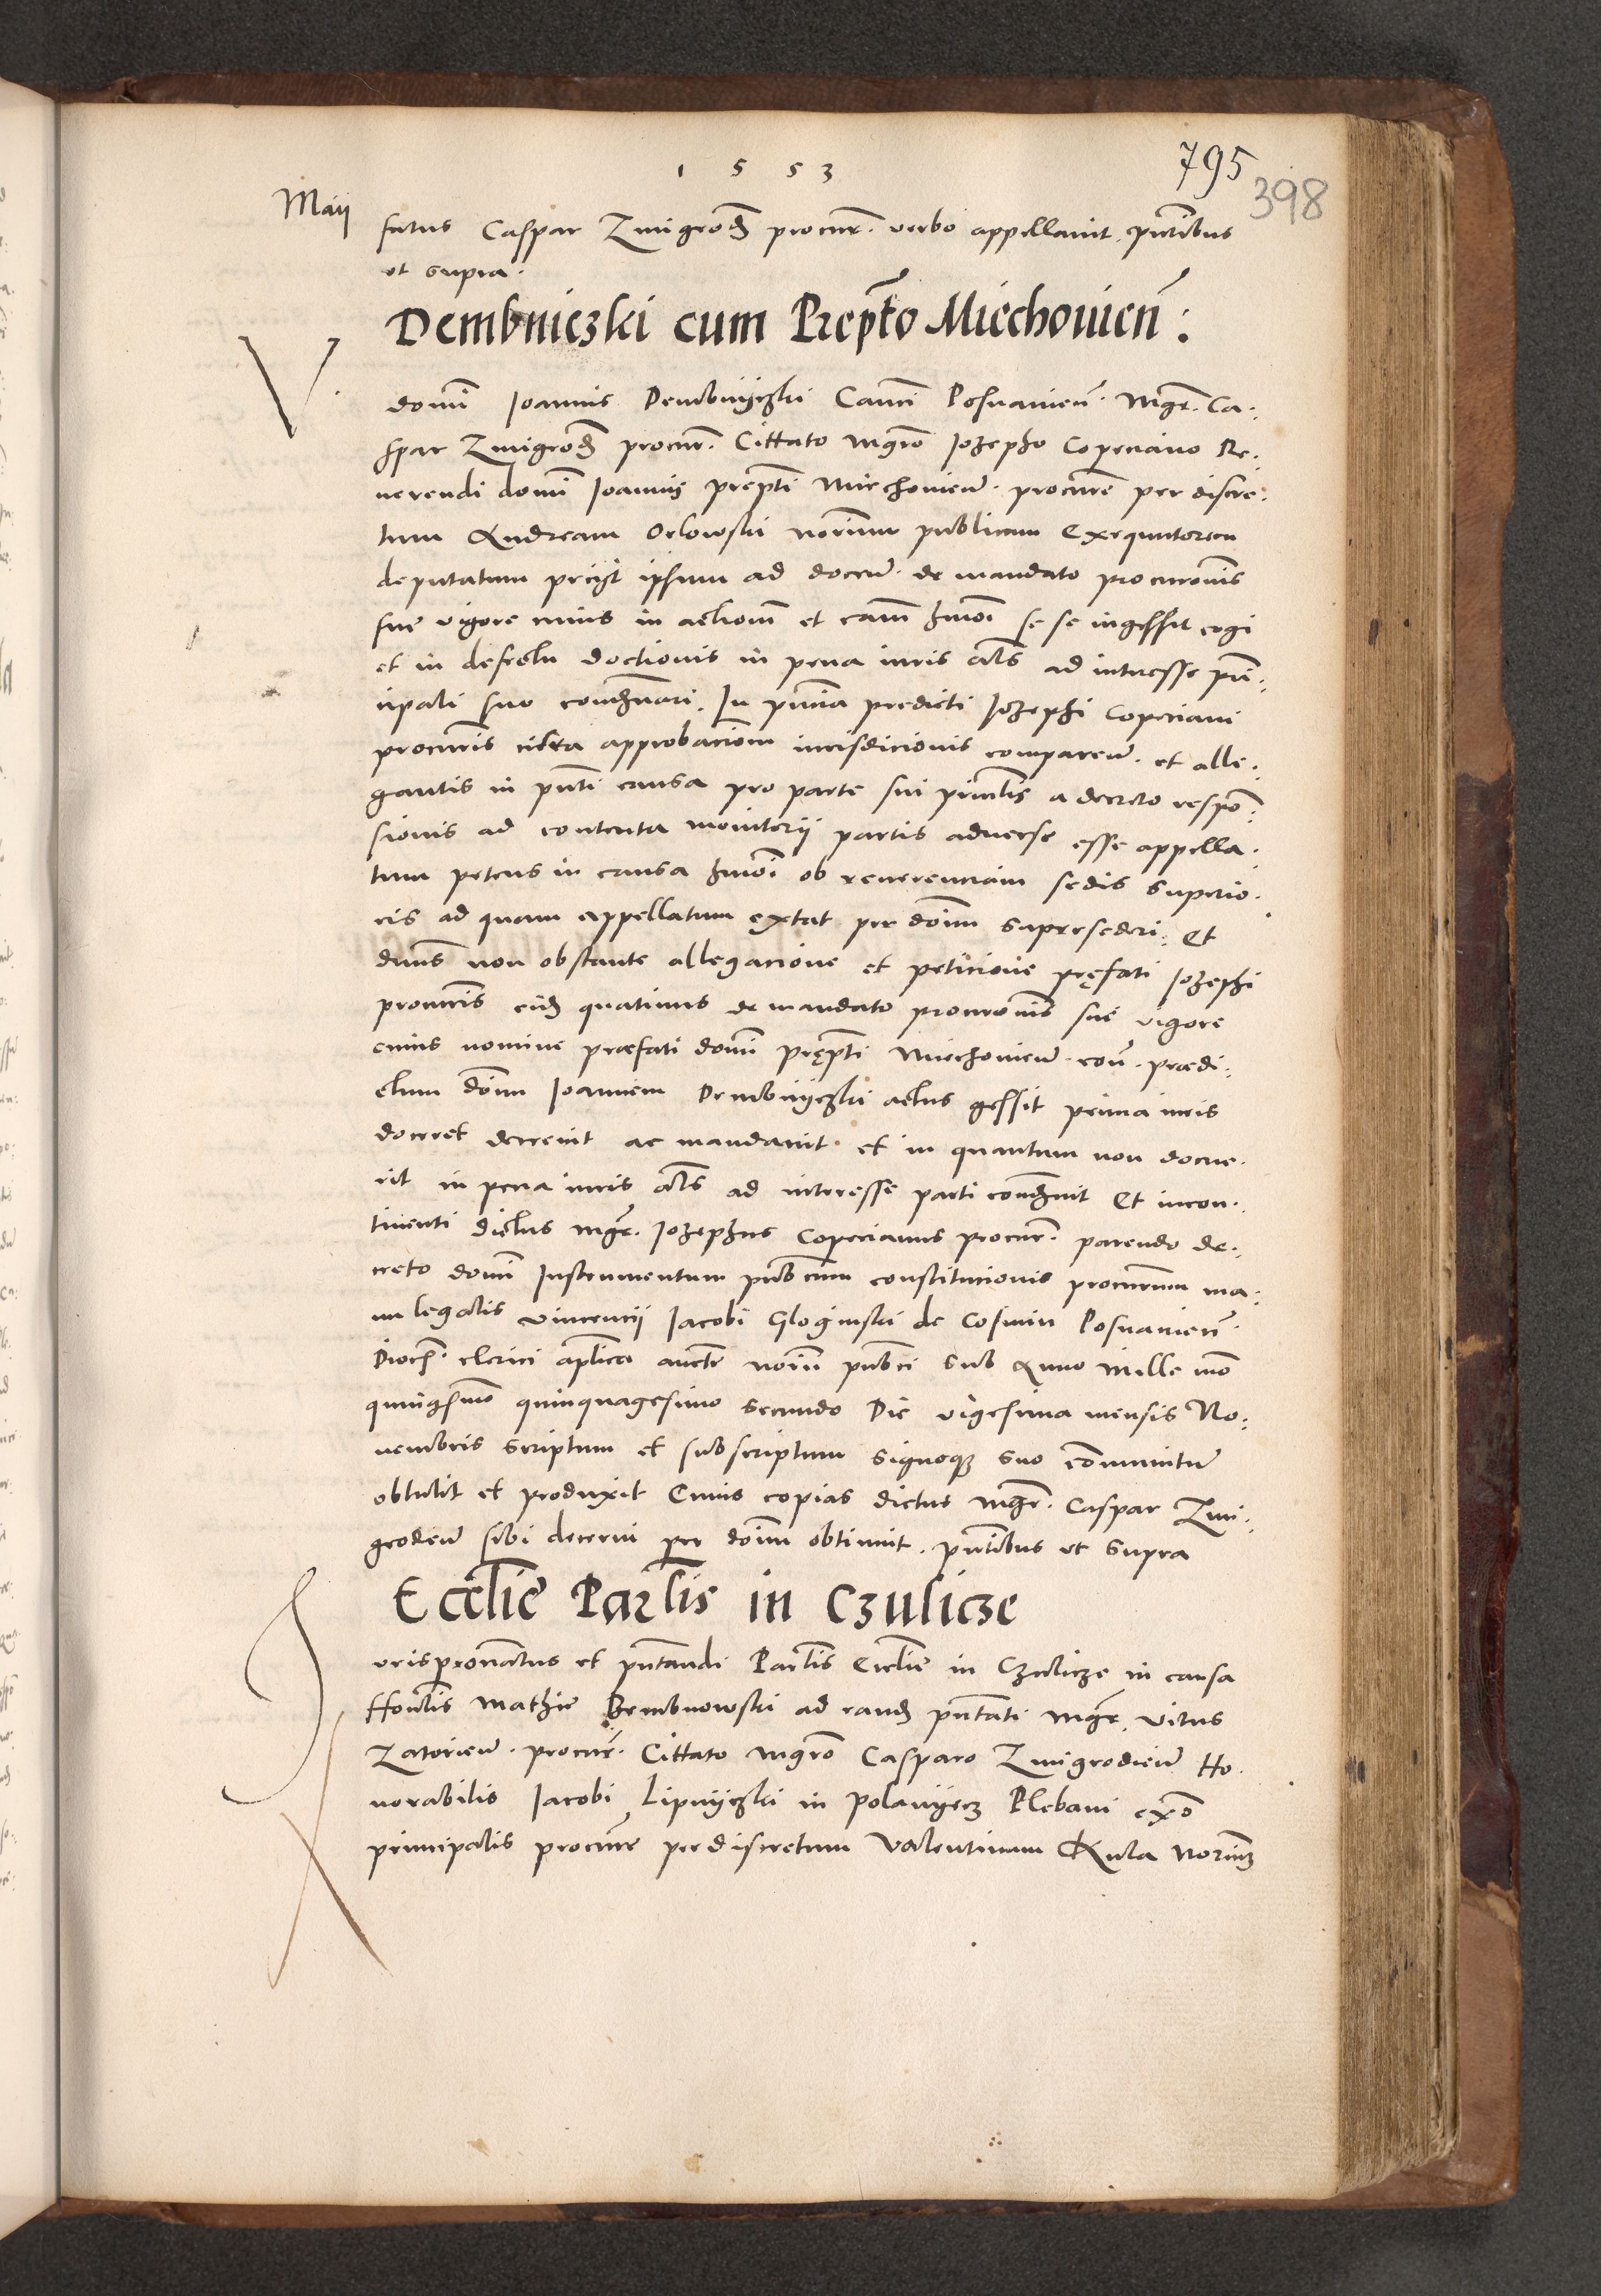 1 5 5 3
795
398
Maij
fatus Caspar Zmigrod̄ procur̄. verbo appellavit. pn̄tibus
ut supra.
Dembniczki cum Prep̄to Miechovien̄:
V.
domī Joannis Dembnyczki Canōci Posnanien̄. Mgr̄. Ca.
spar Zmigrod̄ procur̄. Cittato Mgr̄o Jozepho Copeciano Re.
verendi domī Joannis prep̄ti Miechovien̄. procur̄e per discre.
tum Andream Orlowski notarium publicum Exequutorem
deputatum petijt ipsum ad docen̄. de mandato procur̄onis
sue vigore cuius in actionē et cauām hmōi se se ingessit cogi
et in defectu doctionis in pena iuris ac̄ ad interesse prin.
cipali suo condemnari. In pn̄tia predicti Jozephi Copeciani
procur̄is citra approbacionem iurisdicionis comparen̄. et alle.
gantis in pn̄ti causa pro parte sui prin̄lis a decreto respon̄.
sionis ad contenta monitorij partis adverse esse appella.
tum petens in causa hmōi ob reverenciam sedis superio.
ris ad quam appellatum extat per domīnum supersederi. Et
dn̄us non obstante allegacione et peticione pręfati Jozephi
procur̄is eid̄ quatinus de mandato procur̄onis sue vigore
cuius nomine præfati domī pręp̄ti Miechovien̄. con̄. prædi.
ctum dom̄ Joannem Dembnyczki actus gessit prima iuris
doceret decrevit ac mandavit. et in quantum non docue.
rit in pena iuris ac̄ ad interesse parti condemn̄avit Et incon.
tinenti dictus Mgr̄. Jozephus Copecianus procur̄. parendo de.
creto domī Instrumentum pub̄cum constitucionis procur̄um ma.
nu legalis Vincencij Jacobi Gloginski de Cosmin Posnanien̄.
Dioc̄. clerici ap̄lica auct̄e notarij pub̄ci sub Anno Mille m̄o
quing̃mo quinquagesimo secundo Die vigesima mensis No.
vembris scriptum et subscriptum signoq̨ suo com̄unitum̄
obtulit et produxit Cuius copias dictus Mgr̄. Caspar Zmi.
grodien̄ sibi decerni per dom̄ obtinuit. pn̄tibus ut supra
Eccl̄ie Par̄lis in Czulicze
J
urispr̄onatus et pn̄tandi Par̄lis Eccl̄ie in Czulicze in causa
Hon̄lis Mathie Bembnowski ad eand̄ pn̄tati Mgr̄. Vitus
Zatorien̄. procur̄. Cittato Mgr̄o Casparo Zmigrodien̄ Ho.
norabilis Jacobi Lipnyczki in Polanyecz Plebani ex̄o
principalis procur̄e per discretum Valentinum Kula notariū